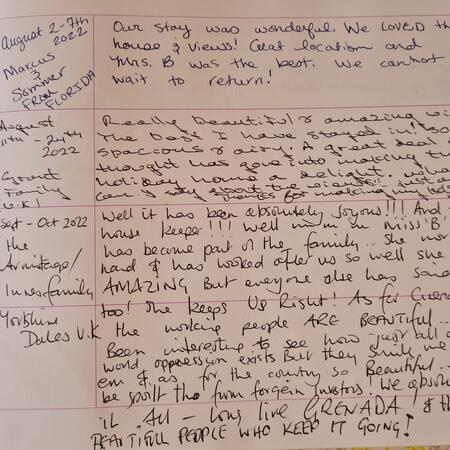 August 2-7th
2022
Marcus
&
Sommer
FROM
FLORIDA
Our stay was wonderful. We LOVED th
house & views! Great location and
Mrs. B was the best. We cannot
wait to return!
August
11th - 24th
2022
Grant
Family
U.K!
Really beautiful & amazing vi
The best I have stayed in! So
spacious & airy. A great deal o
thought has gone into making th
holiday home a delight. Wha
can I say about the views!
thanks for making my hol
Sept - Oct 2022
the
Armitage/
Innes family
Yorkshire
Dales U.K
Well it has been absolutely Joyous!!! And
house keeper!!! Well mum in miss 'B'
has become part of the family.. She
hand & has looked after us so well she
AMAZING But everyone else has
too! She keeps Us Right! As for Grena
the working people ARE BEAUTIFUL..
Been interesting to see how just all o
world oppression exists But they smile
em & as for the country so Beautiful..
be spoilt tho from forgein Investors! We absolu
it. All - Long live GRENADA, & th
BEAUTIFUL PEOPLE WHO KEEP IT GOING!